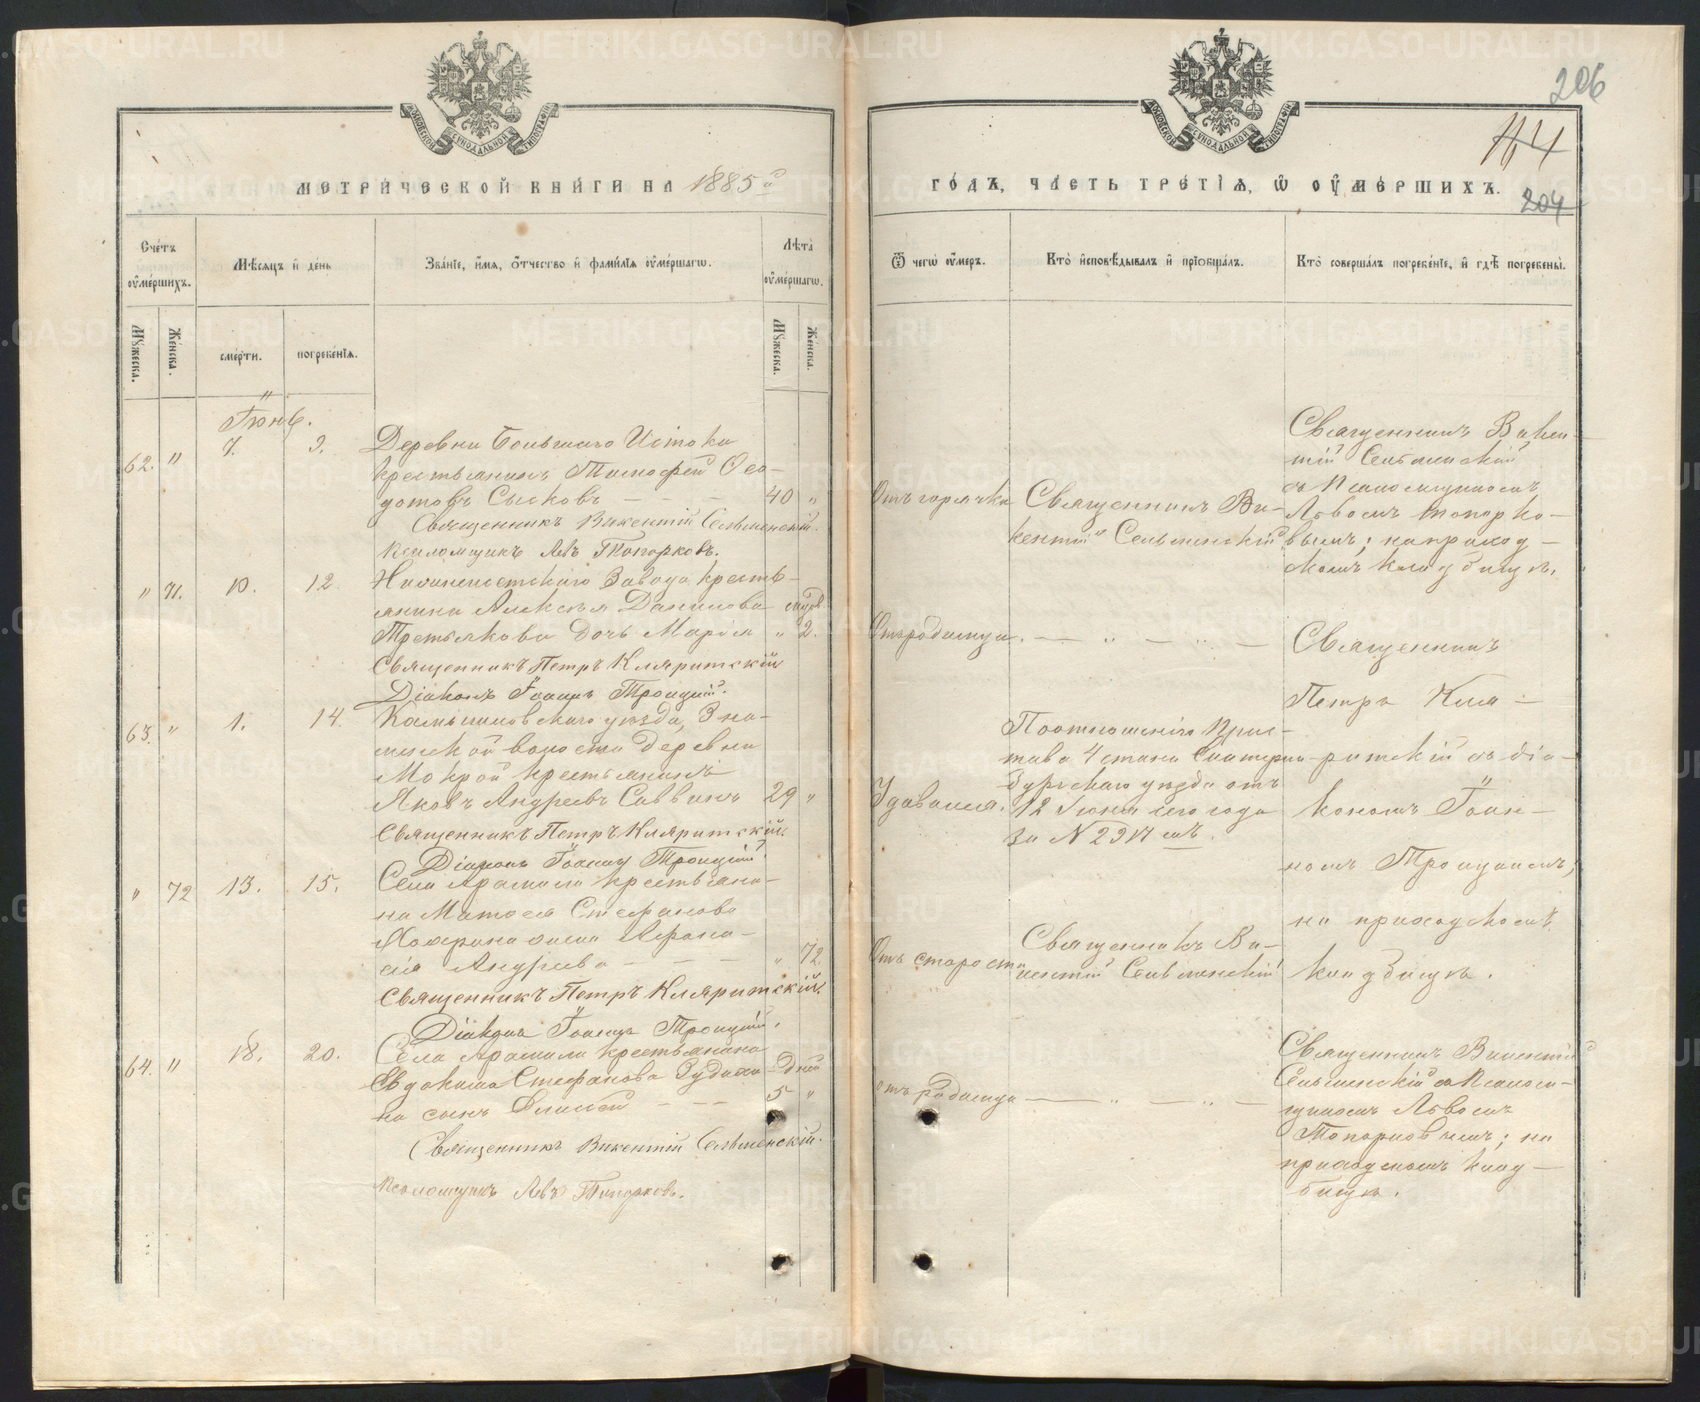 206
114
204
МЕТРИЧЕСКОЙ КНИГИ НА 1885 й
ГОДЪ, ЧАСТЬ ТРЕТІЯ, Ѡ ОУМЕРШИХЪ.
Счетъ оумершихъ.
Мѣсяцъ и день
Званіе, имя, отчество и фамилія оумершагѡ.
Лѣта оумершагѡ.
Ѿ чегѡ оумеръ.
Кто исповѣдывалъ и пріобщалъ.
Кто совершалъ погребеніе, и гдѣ погребены.
Мужеска.
Женска.
смерти.
погребенія.
Мужеска.
Женска.
Іюнь.
62. " 7. 9.
Деревни Большаго Истока
крестьянинъ Тимофей Ѳео-
дотовъ Сысковъ — — — 40 "
Священникъ Викентій Сельменскій.
Псаломщикъ Левъ Топорковъ.
Отъ горячки
Священникъ Ви-
кентій Сельменскій
Священникъ Викен-
тій Сельменскій
съ Псаломщикомъ
Львомъ Топорко-
вымъ; на приход-
скомъ кладбищѣ.
" 71. 10. 12.
Завода кресть-
янина Алексѣя Данилова
Третьякова дочь Марія " 2.
Священникъ Петръ Кляритскій
Діаконъ Іоаннъ Троицкій.
Отъ родимца. — " — " —
Священникъ
Петръ Кля-
ритскій съ діа-
кономъ Іоан-
номъ Троицкимъ;
на приходскомъ
кладбищѣ.
63. " 1. 14.
Камышловскаго уѣзда, Зна-
менской волости деревни
Мокрой крестьянинъ
Яковъ Андреевъ Саввинъ 29 "
Священникъ Петръ Кляритскій
Діаконъ Іоаннъ Троицкій.
Удавился.
По отношенію Прис-
тава 4 стана Екатерин-
бургскаго уѣзда отъ
12 Іюня сего года
за N
" 72 13. 15.
Села Арамили крестьяни-
на Матѳея Стефанова
Афана-
сія Андреева — — — " 72.
Священникъ Петръ Кляритскій.
Діаконъ Іоаннъ Троицкій.
Отъ старости
Священникъ Ви-
кентій Сельменскій
64. " 18. 20.
Села Арамили крестьянина
Евдокима Стефанова дней
на сынъ Елисей — — — 5 "
Священникъ Викентій Сельменскій.
Псаломщикъ Левъ Топорковъ.
отъ родимца — " — " —
Священникъ Викентій
Сельменскій съ Псалом-
щикомъ Львомъ
Топорковымъ; на
приходскомъ клад-
бищѣ.